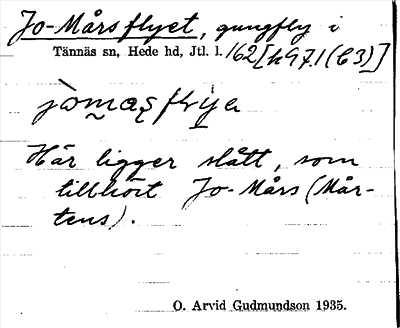 Jo-Mårsflyet, gungfly i
Tännäs sn, Hede hd, Jtl. l. 162 [h97.1(C3)]
Här ligger slått, som
tillhört Jo-Mårs (Mår-
tens).
O. Arvid Gudmundson 1935.